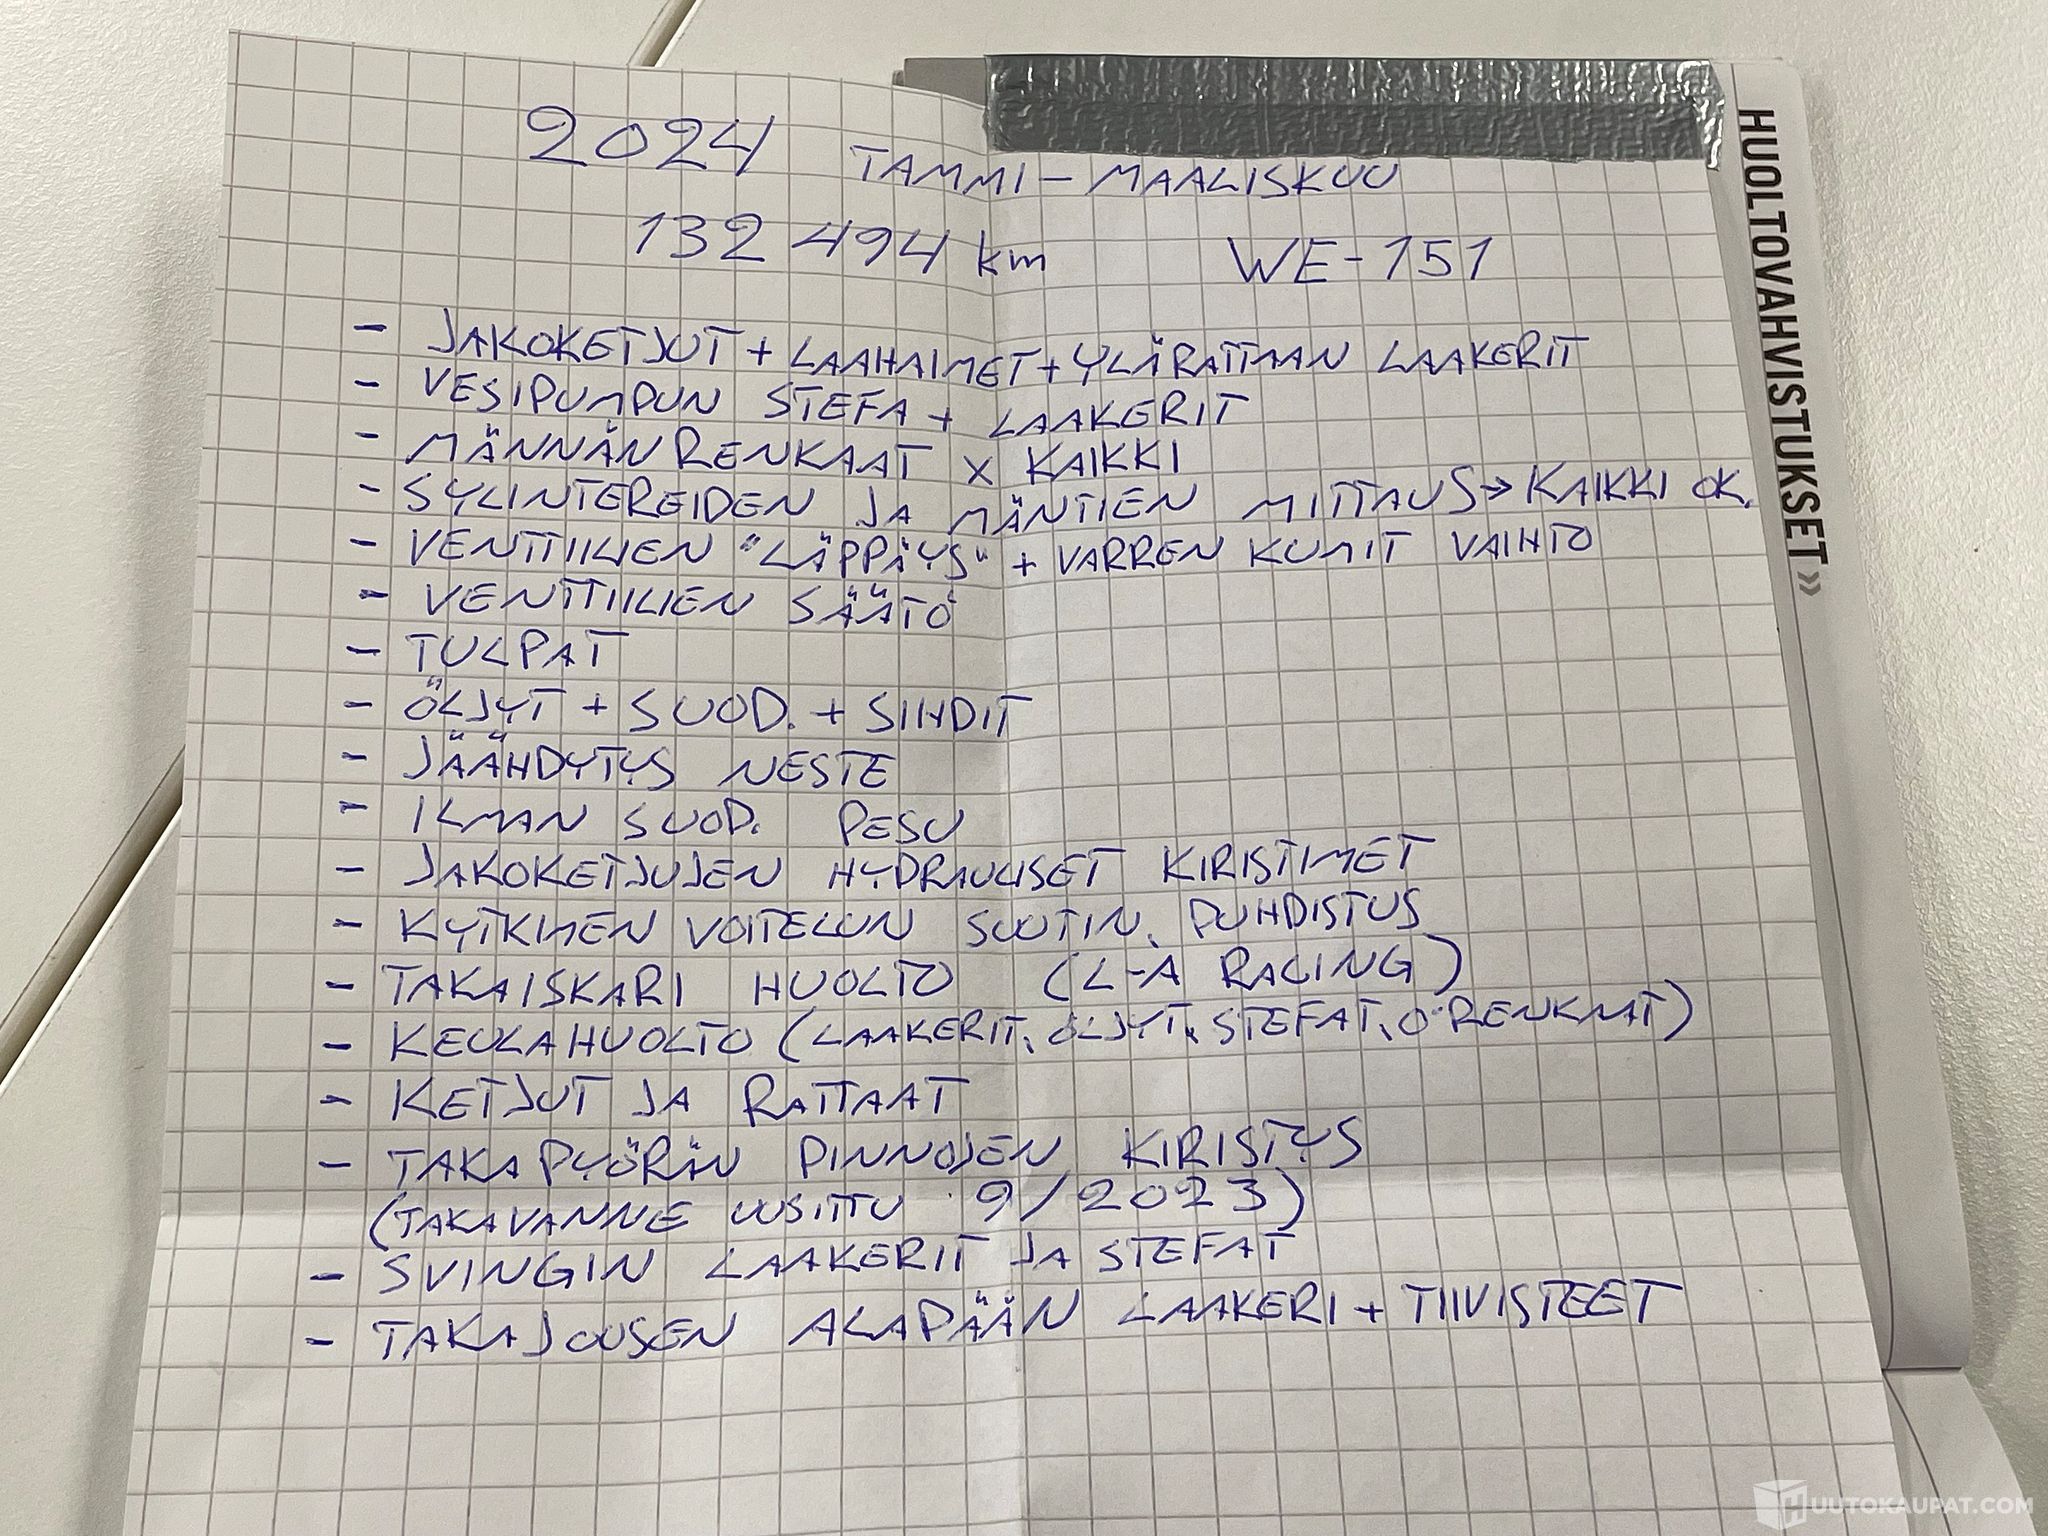 2024 TAMMI - MAALISKUU
132 494 km WE-151
- JAKOKETJUT + LAAHAIMET + YLÄRATTAAN LAAKERIT
- VESIPUMPUN STEFA + LAAKERIT
- MÄNNÄNRENKAAT x KAIKKI
- SYLINTEREIDEN JA MÄNTIEN MITTAUS → KAIKKI OK.
- VENTTIILIEN "LÄPPÄYS" + VARREN KUMIT VAIHTO
- VENTTIILIEN SÄÄTÖ
- TULPAT
- ÖLJYT + SUOD. + SIHDIT
- JÄÄHDYTYS NESTE
- ILMAN SUOD. PESU
- JAKOKETJUJEN HYDRAULISET KIRISTIMET
- KYTKIMEN VOITELUN SUUTIN. PUHDISTUS
- TAKAISKARI HUOLTO (L-A RACING)
- KEULAHUOLTO (LAAKERIT, ÖLJYT, STEFAT, O-RENKAAT)
- KETJUT JA RATTAAT
- TAKAPYÖRÄN PINNOJEN KIRISTYS
(TAKAVANNE UUSITTU 9/2023)
- SVINGIN LAAKERIT JA STEFAT
- TAKAJOUSEN ALAPÄÄN LAAKERI + TIIVISTEET
HUOLTOVAHVISTUKSET »
HUUTOKAUPAT.COM